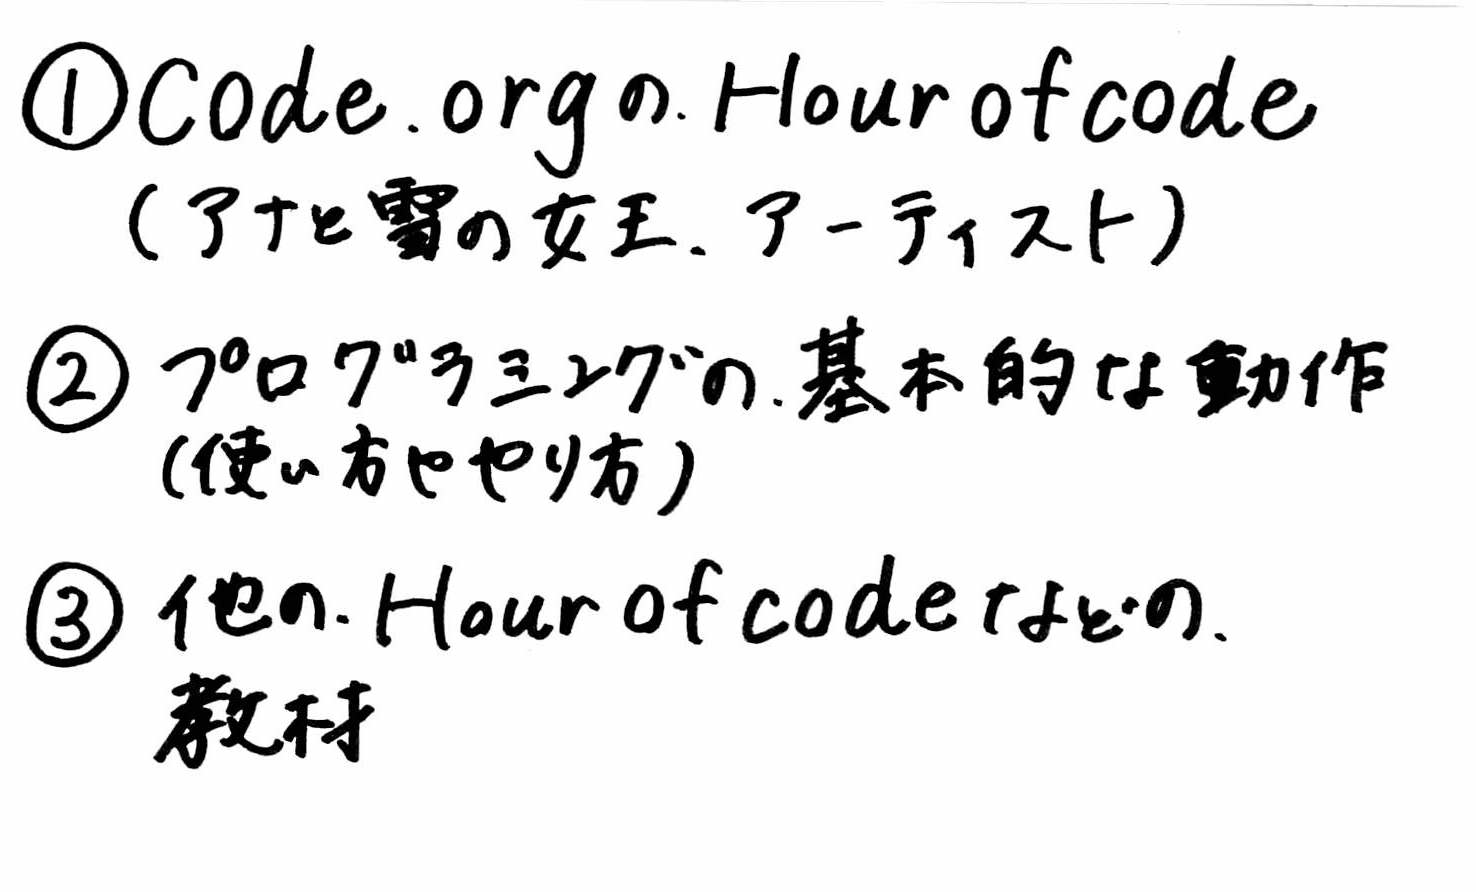 ①Code.orgの Hour of code
(アナと雪の女王、アーティスト)
②プログラミングの基本的な動作
(使い方ややり方)
③他の Hour of codeなどの
教材